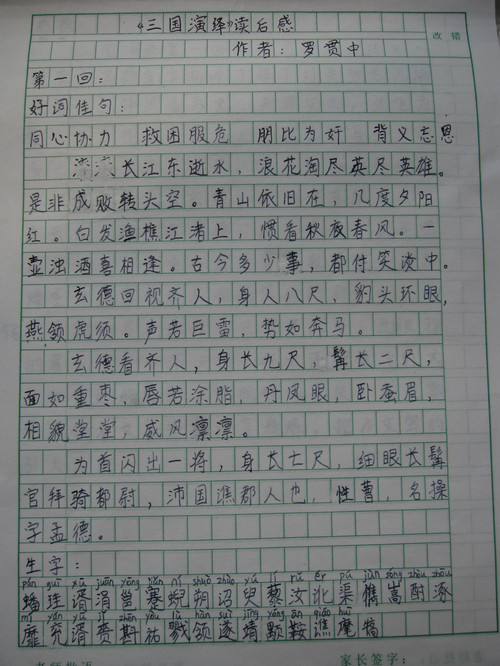 《三国演绎》读后感
改错
作者：罗贯中
第一回：
好词佳句：
同心协力 救困服危 朋比为奸 背义忘恩
滚滚长江东逝水，浪花淘尽英尽英雄。
是非成败转头空。青山依旧在，几度夕阳
红。白发渔樵江渚上，惯看秋夜春风。一
壶浊酒喜相逢。古今多少事，都付笑谈中。
玄德回视齐人，身人八尺，豹头环眼，
燕领虎须。声若巨雷，势如奔马。
玄德看齐人，身长九尺，髯长二尺，
面如重枣，唇若涂脂，丹凤眼，卧蚕眉，
相貌堂堂，威风凛凛。
为首闪出一将，身长七尺，细眼长髯
官拜骑都尉，沛国谯郡人也，性曹，名操
字孟德。
生字：
蟠珪胥涓邕蹇蜺朔诏藜汝渠儁嵩酎涿
靡兖胥戮领遂靖颙鞍谯麾犒
家长签字：